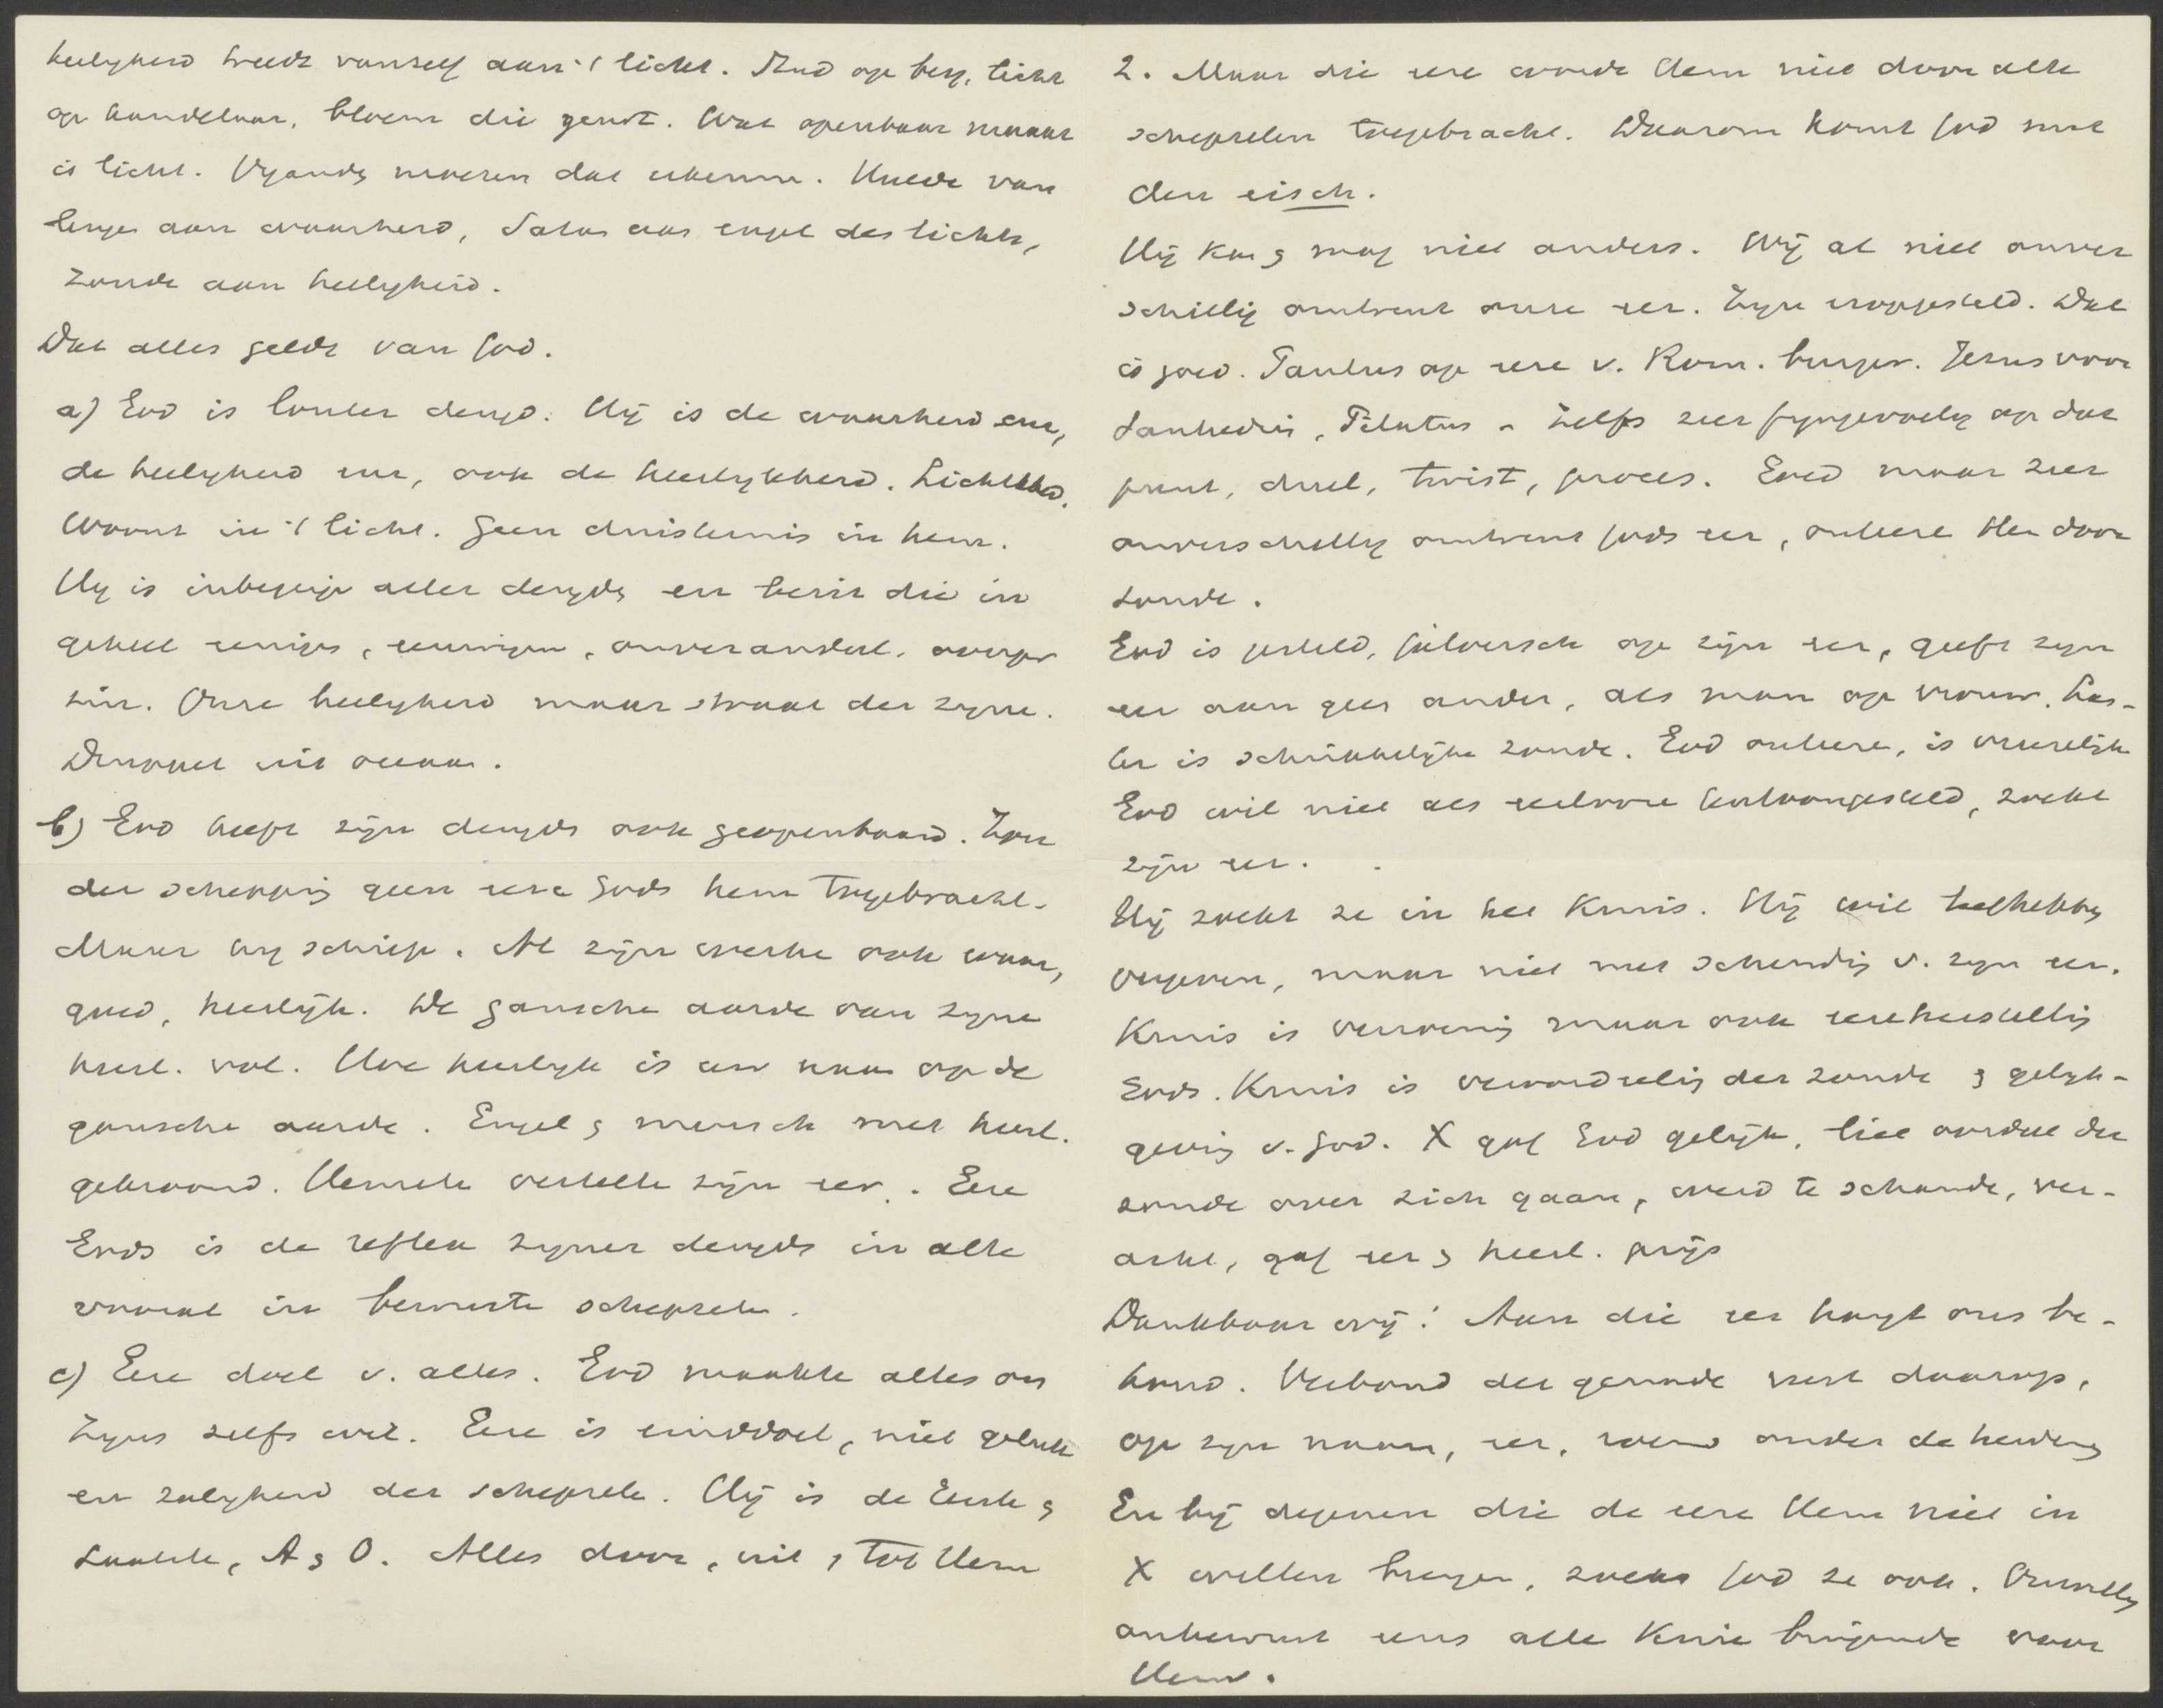 heiligheid treedt vanzelf aan 't licht. Stad op berg, licht
op kandelaar, bloem die geurt. Wat openbaar maakt
is licht. Vijands moeten dat erkennen. Hulde van
leugen aan waarheid, Satan als engel des lichts,
zonde aan heiligheid.
Dat alles geldt van God.
a) God is louter deugd. Hij is de waarheid en,
de heiligheid en, ook de heerlijkheid. Lichtkleed.
Woont in 't licht. Geen duisternis in hem.
Hij is inbegrip aller deugds en bezit die in
geheel eenigen, eeuwigen, onveranderl.
zin. Onze heiligheid maar straal der zijne.
Druppel uit oceaan.
b) God heeft zijn deugds ook geopenbaard. Zon
der schepping geen eere Gods hem toegebracht.
Maar hij schiep. Al zijn werken ook waar,
goed, heerlijk. De gansche aarde van zijne
heerl. vol. Hoe heerlijk is uw naam op de
gansche aarde. Engel & mensch met heerl.
gekroond. Hemele vertelle zijn eer. Eere
Gods is de reflex zijner deugds in alle
vooral in bewuste schepsele.
c) Eere doel v. alles. God maakte alles om
Zijns zelfs wil. Eere is einddoel, niet geluk
en zaligheid der schepsele. Hij is de Eerste &
Laatste, A & O. Alles door, uit, tot Hem
2. Maar die eere wordt Hem niet door alle
schepselen toegebracht. Daarom komt God met
den eisch.
Hij kan & mag niet anders. Wij al niet onver
schillig omtrent onze eer. Zijn erop gesteld. Dat
is goed. Paulus op eere v. Rom. burger. Jezus voor
Sanhedrin, Pilatus - zelfs zeer fijngevoelig op dat
punt, duel, twist, proces. Goed maar zeer
onverschillig omtrent Gods eer, onteere Hem door
zonde.
God is gesteld, jaloersch op zijn eer, geeft zijn
eer aan geen ander, als man op vrouw. Las-
ter is schrikkelijke zonde. God onteere, is vreeselijk
God wil niet als eerloos tentoongesteld, zoekt
zijn eer.
Hij zoekt ze in het Kruis. Hij wil liefhebbs
vergeven, maar niet met schending v. zijn eer.
Kruis is verzoening maar ook eereherstelling
Gods. Kruis is veroordeeling der zonde & gelijk-
geving v. God. X gaf God gelijk, liet oordeel der
zonde over zich gaan, werd te schande, ver-
acht, gaf eer & heerl. prijs
Dankbaar wij! Aan die eer hangt ons be-
houd. Verbond der genade rust daarop,
op zijn naam, eer, roem onder de heidens
En bij degenen die de eere Hem niet in
X willen brengen, zoekt God ze ook. Onwillig
onbewust eens alle knie buigende voor
Hem.